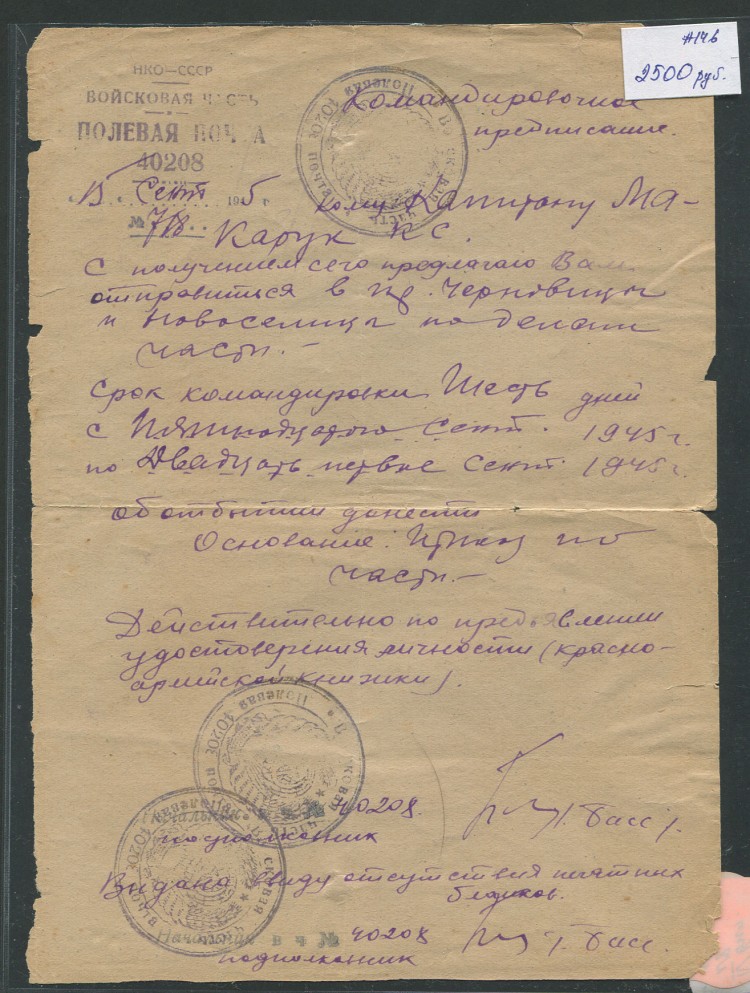 #146
2500 руб.
НКО—СССР
ВОЙСКОВАЯ ЧАСТЬ
ПОЛЕВАЯ ПОЧТА
40208
Командировочное
предписание.
15 Сент 1945 г
№ 718 Кому Капитану Ма-
карук К С.
С получением сего предлагаю Вам
отправиться в гор. Черновицы
и Новоселица по делам
части.-
Срок командировки Шесть дней
с Пятнадцатого Сент. 1945 г.
по Двадцать первое Сент. 1945 г.
об отбытии донести
Основание: Приказ по
части.-
Действительно по предъявлении
удостоверения личности (красно-
армейской книжки).
Начальник в ч № 40208.
подполковник /. Басс /.
Видана ввиду отсутствия печатных
бланков.
Начальник в ч № 40208
подполковник /. Басс.
Войсковая часть Полевая почта 40208